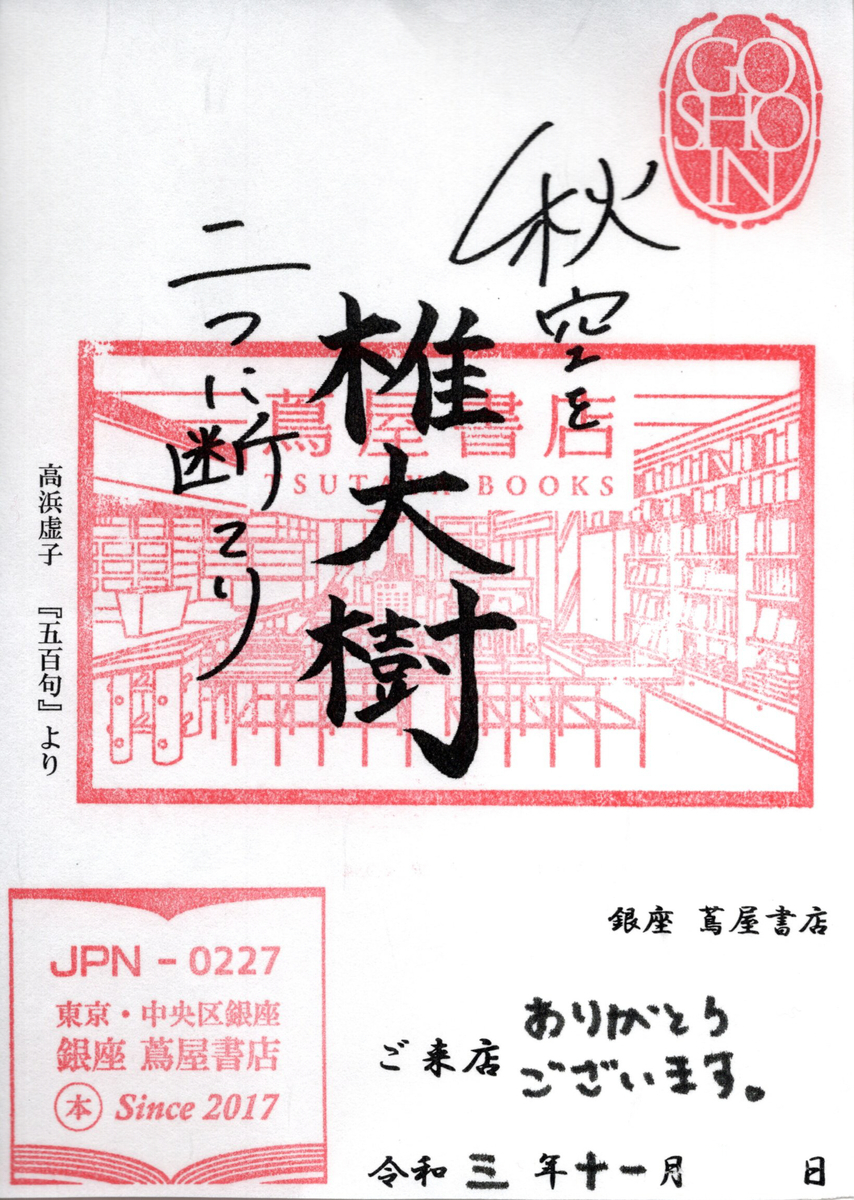 GO
SHO
IN
秋空を
二つに断てり
椎大樹
高浜虚子 『五百句』より
蔦屋書店
TSUTAYA BOOKS
銀座 蔦屋書店
ご来店
ありがとう
ございます。
令和三年十一月 日
JPN - 0227
東京・中央区銀座
銀座 蔦屋書店
本 Since 2017